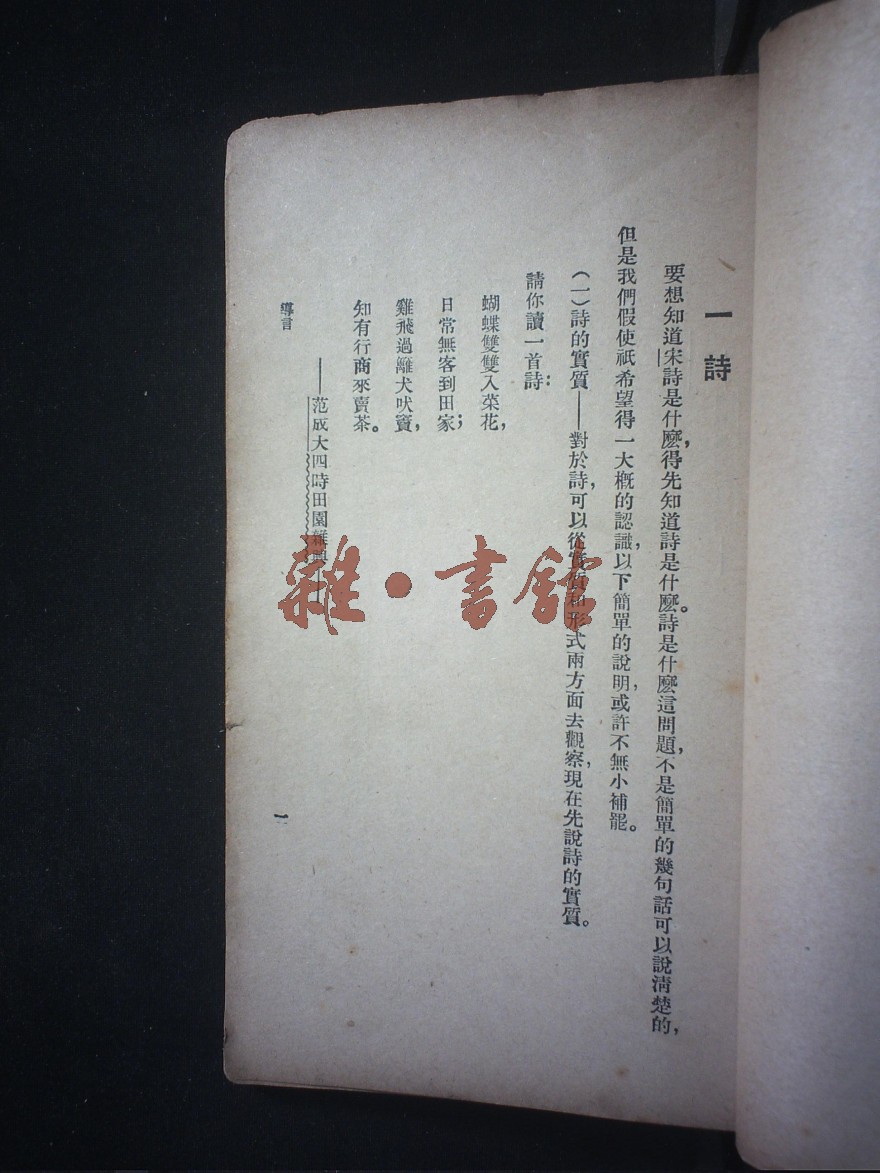 一 詩
要想知道宋詩是什麼,得先知道詩是什麼。詩是什麼這問題,不是簡單的幾句話可以說清楚的,
但是我們假使祇希望得一大概的認識,以下簡單的說明,或許不無小補罷。
(一)詩的實質——對於詩,可以從實質和形式兩方面去觀察,現在先說詩的實質。
請你讀一首詩:
蝴蝶雙雙入菜花,
日常無客到田家;
雞飛過籬犬吠竇,
知有行商來賣茶。
——范成大四時田園雜興——
導言
一
雜·書館